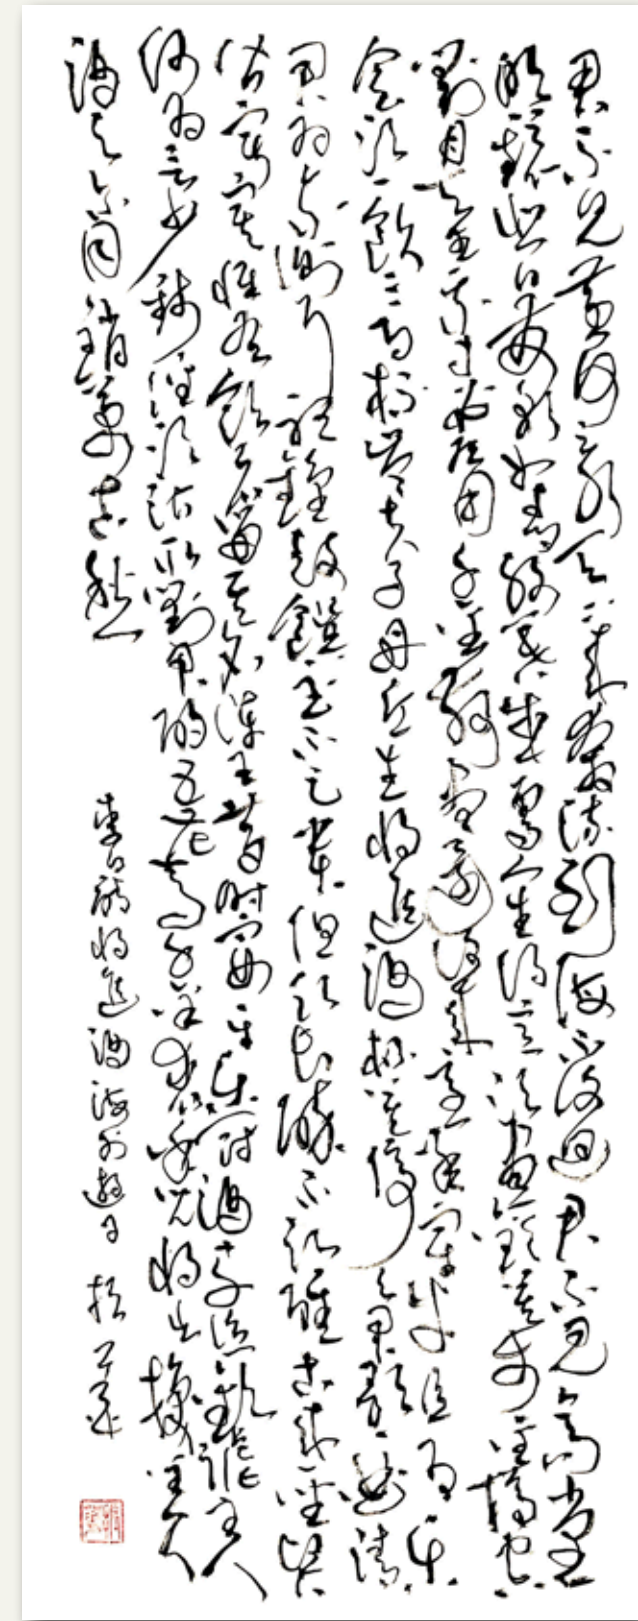 君不見黃河之水天上來奔流到海不復迴君不見高堂
明鏡悲白髮朝如青絲暮成雪人生得意須盡歡莫使金樽空
對月天生我才必有用千金散盡還復來烹羊宰牛且為樂
會須一飲三百杯岑夫子丹丘生將進酒杯莫停與君歌一曲請
君為我側耳聽鐘鼓饌玉不足貴但願長醉不願醒古來聖賢皆
皆寂寞惟有飲者留其名陳王昔時宴平樂斗酒十千恣歡謔主人
何為言少錢徑須沽取對君酌五花馬千金裘呼兒將出換美
酒與爾同銷萬古愁
李白詩將進酒海外遊子